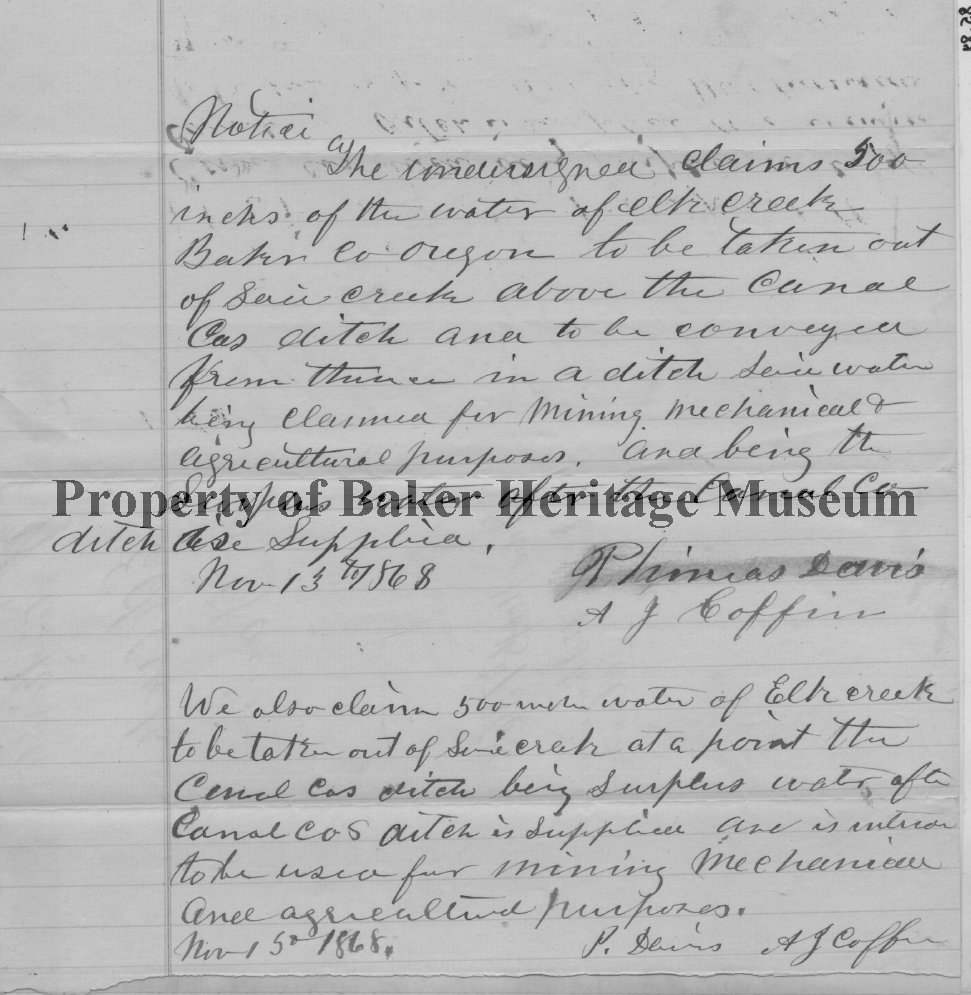 Notice
The undersigned claims 500
inchs of the water of elk creek
Baker Co Oregon to be taken out
of Said creek above the Canal
Cos ditch and to be conveyed
from thence in a ditch Said water
being claimed for Mining Mechanical &
agricultural purposes. And being the
Surplus water after the Canal Co
Property of Baker Heritage Museum
ditch is Supplied.
Nov 13th 1868
Phineas Davis
A J Coffin
We also claim 500 inch water of Elk creek
to be taken out of Said creek at a point the
Canal Cos ditch being Surplus water after
Canal COS ditch is Supplied and is intend
to be used for mining Mechanical
And agricultural purposes.
Nov 15 1868.
P. Davis A J Coffin